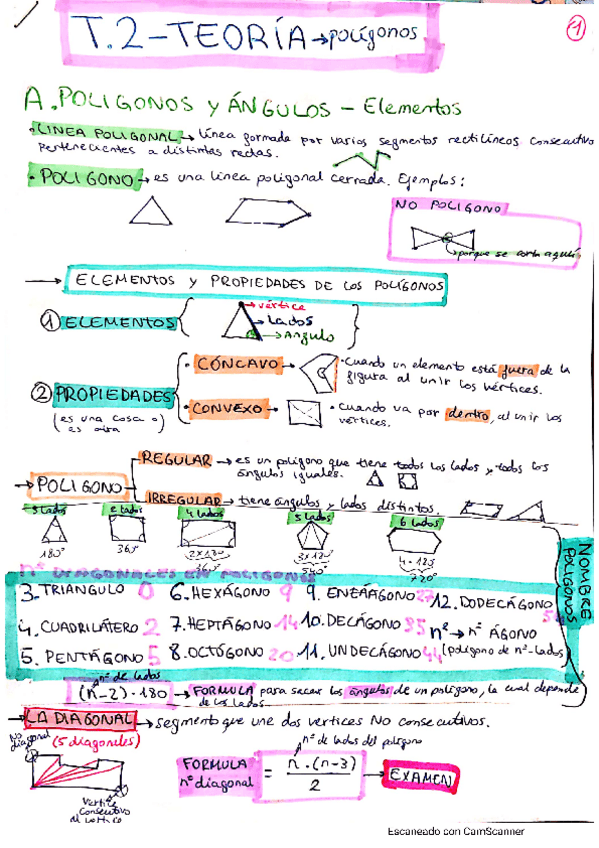 T.2-TEORÍA → polígonos
1
A. POLIGONOS Y ÁNGULOS - Elementos
· LINEA POLIGONAL → línea formada por varios segmentos rectilíneos consecutivo
pertenecientes a distintas rectas.
· POLIGONO → es una linea poligonal cerrada. Ejemplos:
NO POLIGONO
porque se corta aquí
→ ELEMENTOS Y PROPIEDADES DE LOS POLÍGONOS
① ELEMENTOS
vértice
Lados
Ángulo
② PROPIEDADES
(es una cosa o
es otra)
· CÓNCAVO → · Cuando un elemento está fuera de la
figura al unir los vértices.
· CONVEXO → · Cuando va por dentro, al unir los
vértices.
→ POLIGONO
REGULAR → es un polígono que tiene todos los lados y todos los
ángulos iguales.
IRREGULAR → tiene ángulos y lados distintos.
3 lados
4 lados
5 lados
6 lados
180°
360°
2x180
360°
3x180
540°
4·180
720°
NOMBRE
POLIGONOS
nº DIAGONALES EN POLIGONOS
3. TRIANGULO 0 6. HEXÁGONO 9 9. ENEÁÁGONO 27 12. DODECÁGONO 54
4. CUADRILÁTERO 2 7. HEPTÁGONO 14 10. DECÁGONO 35 nº → nº ÁGONO
5. PENTÁGONO 5 8. OCTÓGONO 20 11. UNDECÁGONO 44 (polígono de nº-lados)
nº de lados
(n-2)·180 → FORMULA para sacar los ángulos de un polígono, la cual depende
de los lados
→ LA DIAGONAL → segmento que une dos vertices NO consecutivos.
No diagonal
(5 diagonales)
Vertice
consecutivo
al vertice
nº de lados del polígono
FORMULA
nº diagonal
= n·(n-3)
2
→ EXAMEN
Escaneado con CamScanner